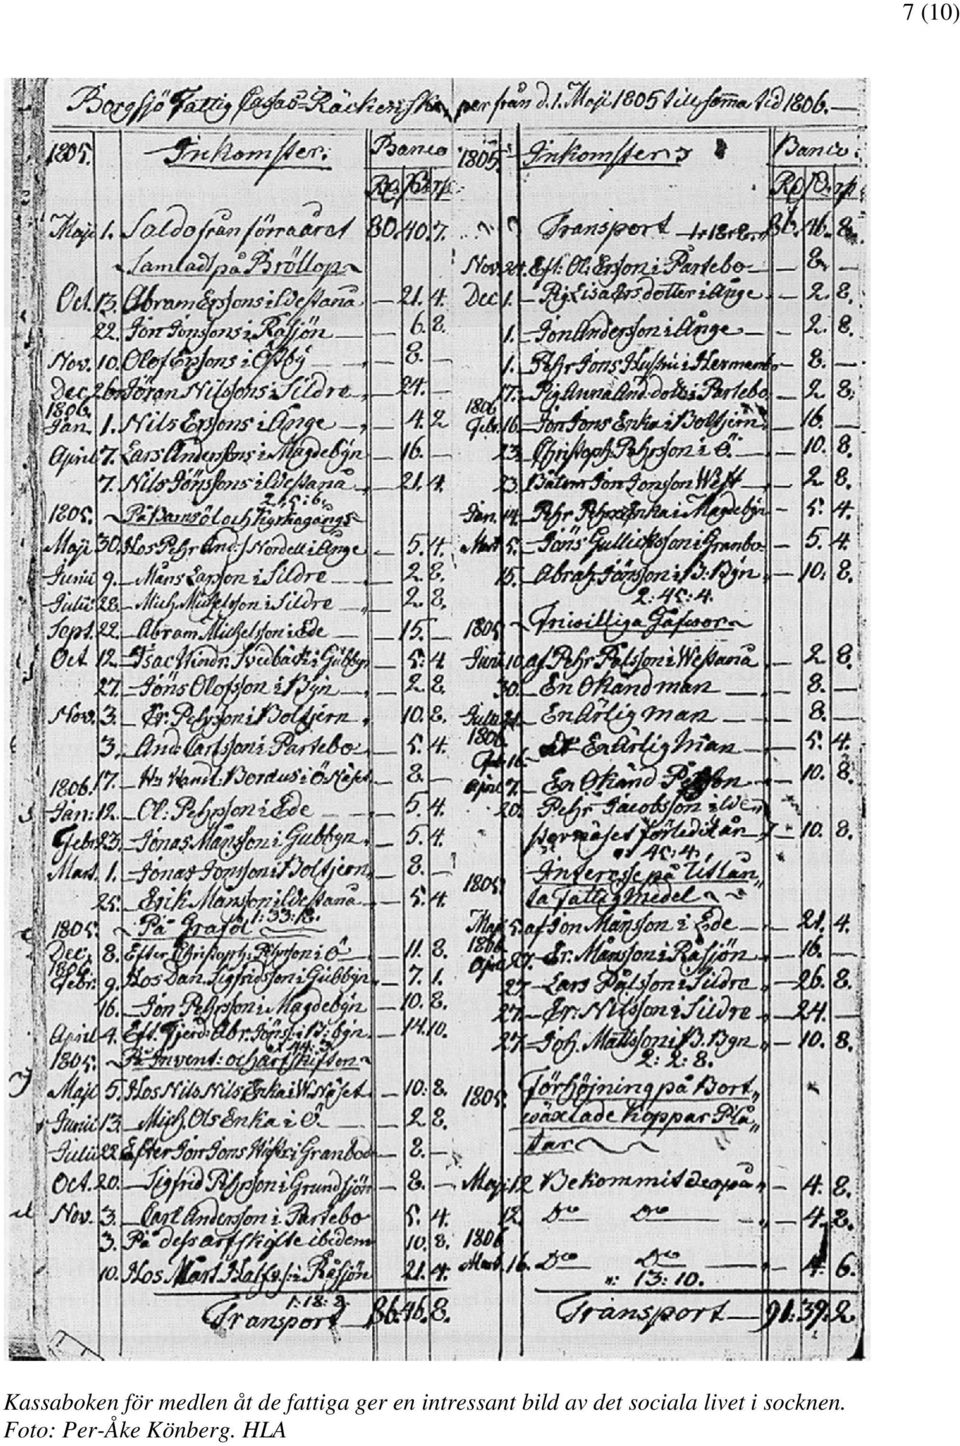 7 (10)
Borgsjö Fattig Cassæ Räckenskap per från d. 1. Maji 1805 till samma tid 1806.
1805. Inkomster. Banco
Maji 1. Saldo från förra året 80.40.7.
Samladt på Bröllop
Oct. 13. Abram Ersons i Ildestana 21.4.
22. Jon Jonssons i Råsjön 6.8.
Nov. 10. Olof Ersons i 8.
Dec. 26. Jöran Nilssons i Sildre 24.
1806.
Jan. 1. Nils Ersons i Ånge 4.2
April 7. Lars Anderssons i Magdebyn 16.
7. Nils Jönssons i Ildestana 21.4.
2:5:6.
1805. På Barnsöl och Kyrkogångs
Maji 30. Hos Pehr And: Nordell i Ånge 5.4.
Junii 9. Måns Larsson i Sildre 2.8.
Julii 28. Mich. Michelsson i Sildre 2.8.
Sept. 22. Abram Michelsson i Ede 15.
Oct. 12. Isac Hindr. Svedbäck i Gubbyn 5:4.
27. Jöns Olofsson i Byn 2.8.
Nov. 3. Er. Pehrson i Boltjern 10.8.
3. And: Carlsson i Partebo 5.4.
17. Hr Handl: Bordus i Ö Näset 8.
1806.
Jan: 12. Ol: Pehrson i Ede 5.4.
Febr. 23. Jonas Månsson i Gubbyn 5.4.
Mart. 1. Jonas Jonsson i Boltjern 8.
25. Erik Månsson i Ildestana 5.4.
1:33:8.
1805. På Graföl
Dec. 8. Efter Christoph: Pehrsson i Ö 11.8.
1806.
Febr. 9. Hos Dan. Sigfridsson i Gubbyn 7.1.
16. Jon Pehrsson i Magdebyn 10.8.
April 4. Eft. Fjerd: Abr. Jönss: i B:byn 14.10.
1805. På Invent: och arfskiften
Maji 5. Hos Nils Nils Enka i W. Näset 10:8.
Junii 13. Mich. Ols Enka i Ö. 2.8.
Julii 22. Efter Jon Jons Hust: i Granbod 8.
Oct. 20. Sigfrid Pehrson i Grundsjön 8.
Nov. 3. Carl Andersson i Partebo 5.4.
3. På dess arfskifte ibidem 10.8.
10. Hos Mårt. Halfvs: i Råsjön 21.4.
1:18:8.
Transport 86.46.8.
1805. Inkomster Banco.
Transport 86.46.8.
Nov. 24. Eft. Ol. Ersson i Partebo 8.
Dec. 1. Pig. Lisa Ers dotter i Ånge 2.8.
1. Jon Andersson i Ånge 2.8.
1. Pehr Jons Hustru i Hermanbo 8.
17. Pig. Anna And. dotter i Partebo 2.8.
1806
Febr. 16. Jon Jons Enka i Boltjern 16.
23. Christoph. Pehrsson i Ö 10.8.
23. Båtsm. Jon Jonsson Wift 2.8.
Jan. 14. Pehr Pehrs Enka i Magdebyn 5.4.
Mart. 5. Jöns Gullicksson i Granbo 5.4.
15. Abrah. Jönsson i B:Byn 10:8.
2:45:4.
1805. Friwilliga Gåfwor
Junii 10. af Pehr Pålsson i Westanå 2.8.
30. En Okänd man 8.
Julii 21. En Ärlig man 8.
1806.
16. En Ärlig Man 5.4.
April 7. En Okänd Person 10.8.
20. Pehr Jacobsson i Ilde
10.8.
:45:4.
1805. Interesse på Utlån
ta Fattig Medel
Maji 5. af Jon Månsson i Ede 21.4.
1806
April 27. Er. Månsson i Råsjön 16.
27. Lars Pålsson i Sildre 26.8.
27. Er: Nilsson i Sildre 24.
27. Joh. Mattsson i B. Byn 10.8.
2:2:8.
1805. Förhöjning på Bort
wäxlade Koppar Plå
tar
Maji 12 Bekommit deruppå 4.8.
12. Do Do 4.8.
1806
Mart. 16. Do Do 4:6.
": 13:10.
Transport 91:39.2.
Kassaboken för medlen åt de fattiga ger en intressant bild av det sociala livet i socknen.
Foto: Per-Åke Könberg. HLA